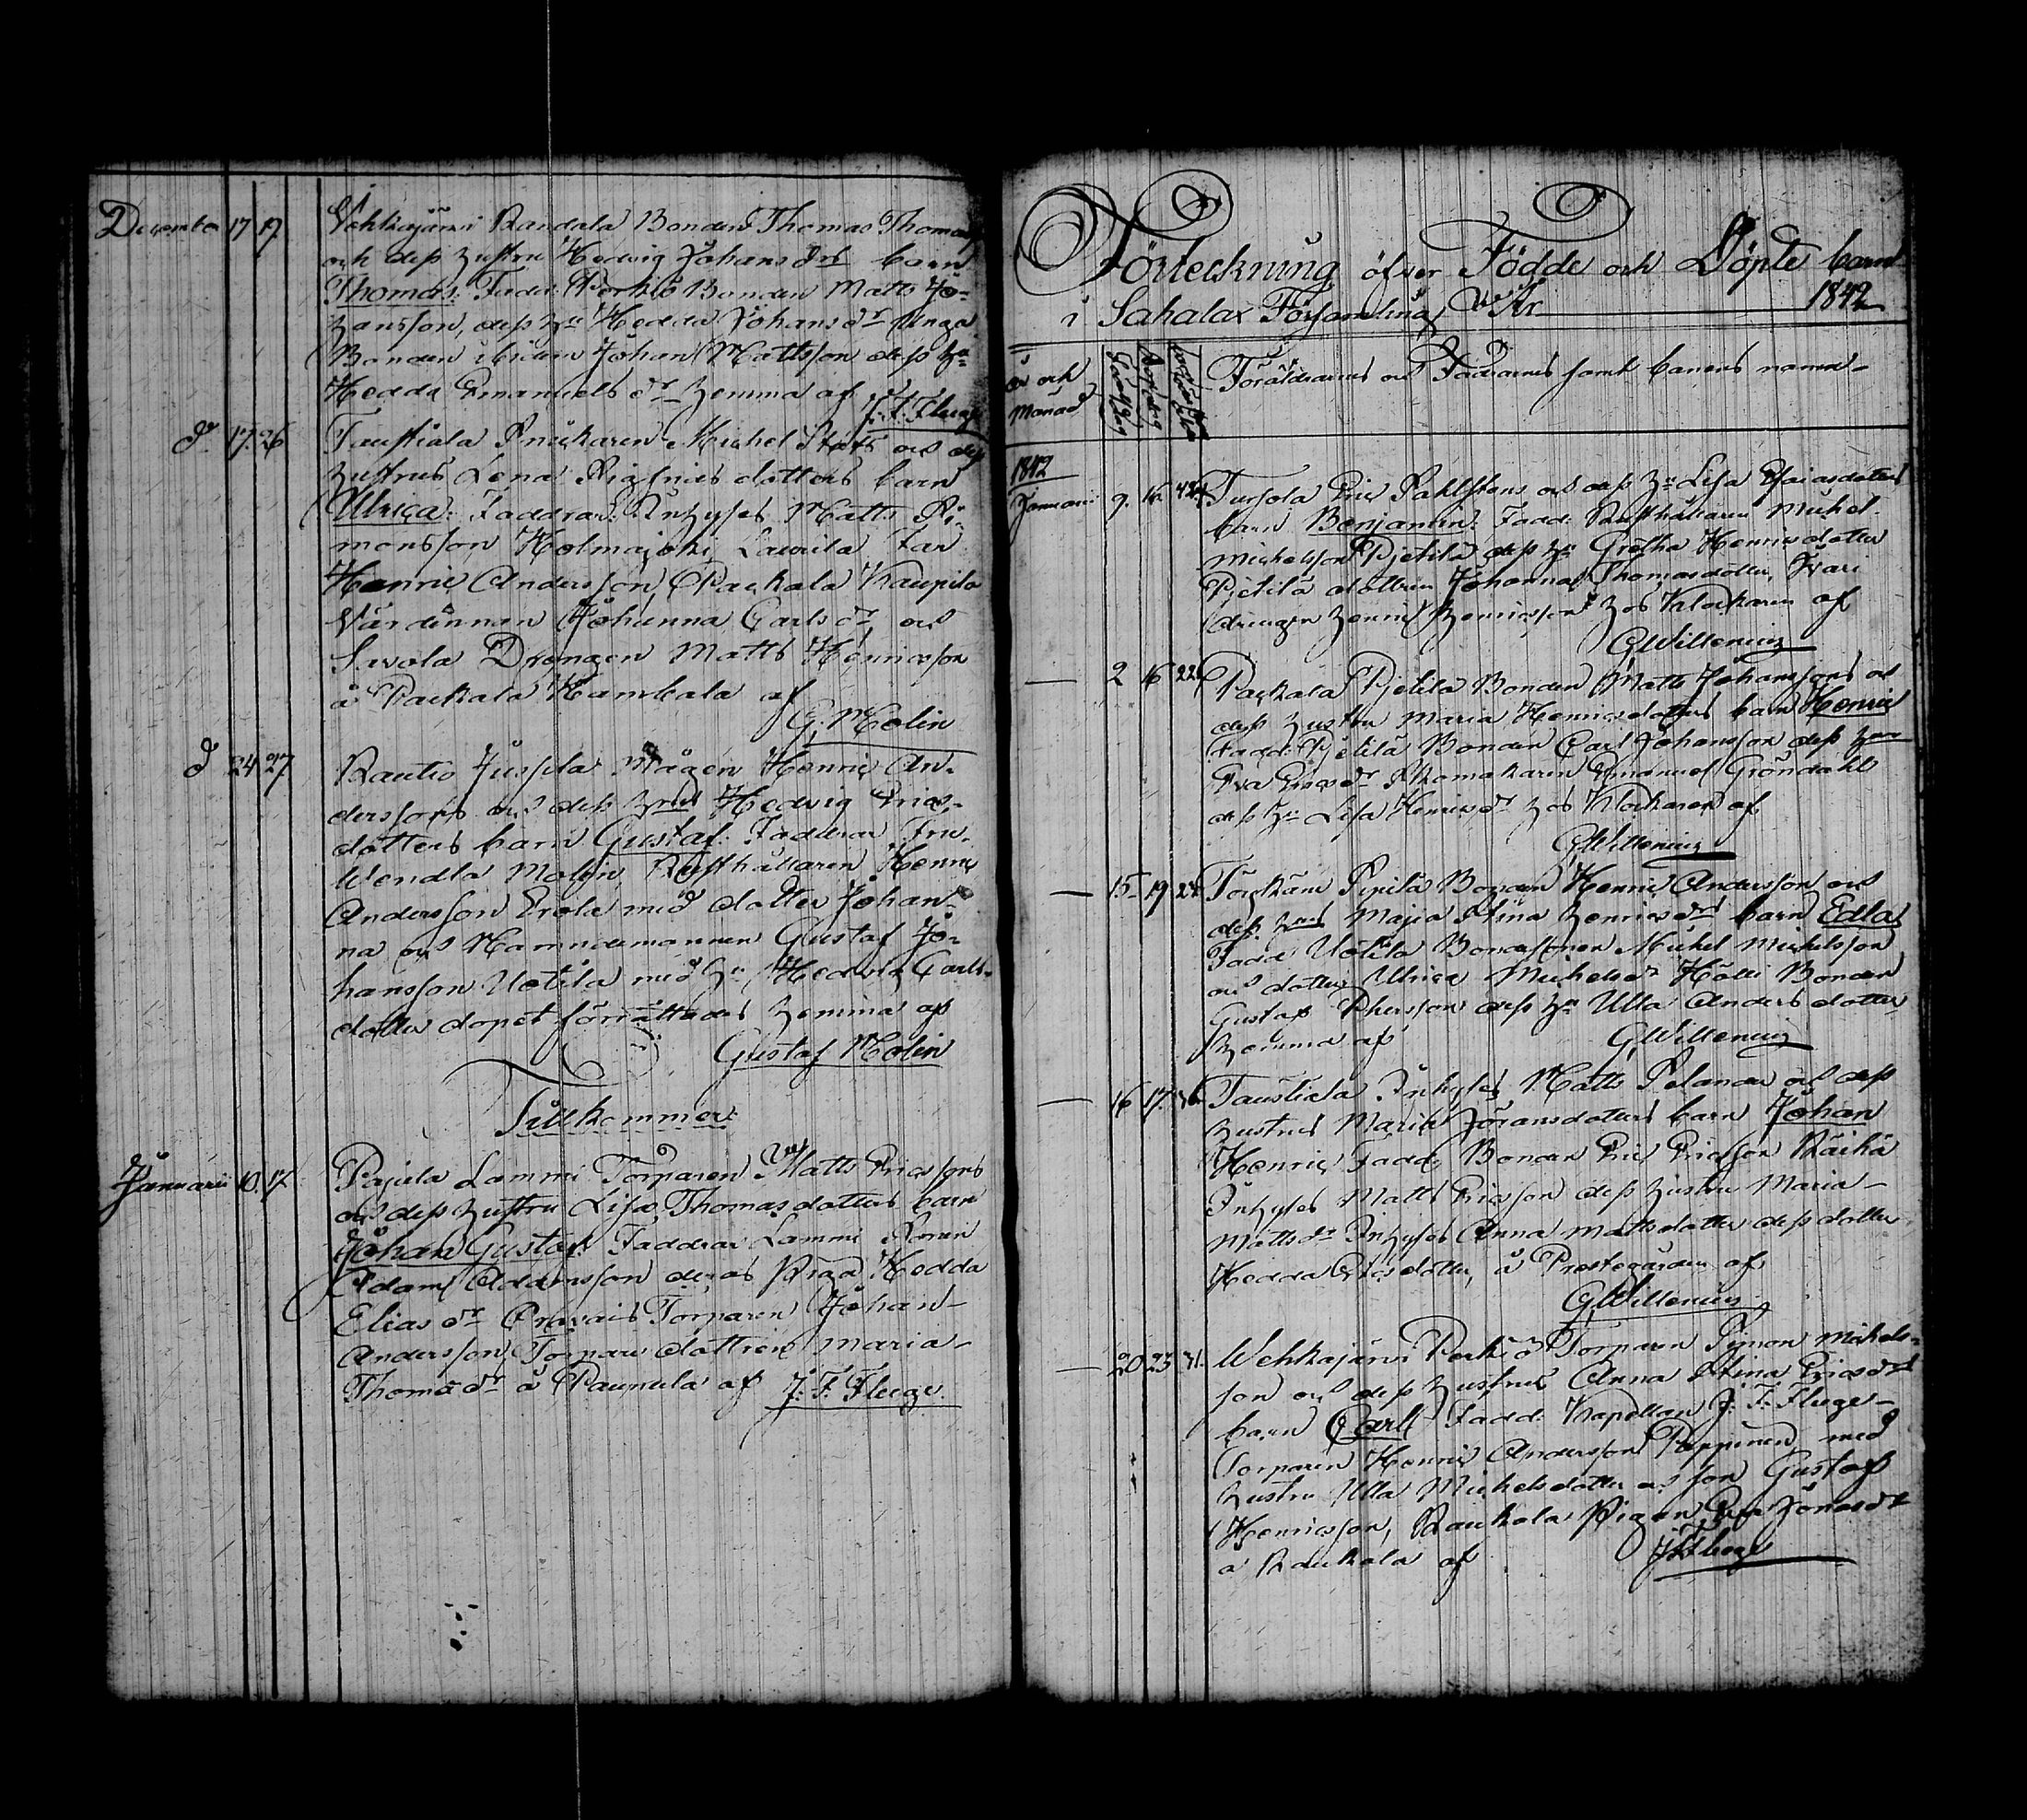 December 17 17 Vehkajärvi Randala Bonden Thomas Thomas
och dess hustru Hedvig Johans drs barn
Thomas: Fadd: Perkiö Bonden Matts Jo-
hansson, dess hu Hedda Johans dr Unga
Bonden ibidem Johan Mattsson dess hu
Hedda Emanuels dr hemma af
J. F. Fluge
do 17. 26 Taustiala Snickaren Michel och dess
hustrus Lena dotters barn
Ulrica: Faddrar: Inhyses Matts Si-
monsson Kolmajoki Laurila
Henric Andersson, Packala Kaupila
Värdinnan Johanna Carls dr och
Savola Drengen Matts Henricsson
å Packala af
G. Molin
do 24 27 Rautio Jussila Mågen Henric An-
derssons och dess hrus Hedvig Erics-
dotters barn Gustaf: Faddrar Fru
Wendla Molin, Rusthållaren Henric
Andersson Erola med dotter Johan-
na och Nämndemannen Gustaf Jo-
hansson Uotila med hu Hedvig Carls-
dotter dopet förrättades hemma af
Gustaf Molin
Tillkommer:
Januarii 10. 17. Pajula Lammi Torparen Matts Ericssons
och dess hustru Lisa Thomasdotters barn
Johan Gustaf: Faddrar Lammi
Adam Adamsson deras Piga Hedda
Elias dr Torparen Johan
Andersson, Torpare dottren Maria
Thomædr å af J. F. Fluge.
Förteckning öfver Födde och Döpte barn
i Sahalax Församling År 1842
År och
Månad
Födelsedag
Föräldrarnes och Faddrarnes samt barnens namn
1842
Januari 9. 16. 42 Tursola Eric Pahlstens och dess hu Lisa Esaiasdotters
barn Benjamin: Fadd: Rusthållaren Michel
Michelsson Pjetilä dess hu Gretha Henricsdotter
Pjetilä dottren Johanna Thomasdotter,
drengen Henric Henricsson hos Klockaren af
GWillenius
— 2 16 22 Packala Pjetilä Bonden Matts Johanssons och
dess hustru Maria Henricsdotters barn Henric
Fadd: Pjetilä Bonden Carl Johansson dess hu
Eva Erics dr Skomakaren Emanuel Gröndahl
dess hu Lisa Henrics dr hos Klockaren af
GWillenius
— 15 19 Bonden Henric Andersson och
dess hrus Maja Stina Henrics drs barn Edla
Fadd: Uotila Bondesonen Michel Michelsson
och dotter Ulrica Michels dr Hölli Bonden
Gustaf Phersson dess hu Ulla Anders dotter
hemma af GWillenius
— 16 17. Taustiala Inhyses Matts Selander och dess
hustrus Maria Göransdotters barn Johan
Henric Fadd: Bonden Eric Ericsson Räihä
Inhyses Matts Ericsson dess hustru Maria
Matts dr Inhyses Anna Mattsdotter dess dotter
Hedda Ericsdotter, å Prestegården af
GWillenius
— 20 23 31. Wehkajärvi Perkiö Torparen Simon Michels-
son och dess hustrus Anna Stina Erics drs
barn Carl Fadd: Kapellan J. F. Fluge
Torparen Henric Andersson Pappinen med
hustru Ulla Michelsdotter och son Gustaf
Henricsson, Raukola Pigan Eva Jonasdr
å Raukola af JFFluge